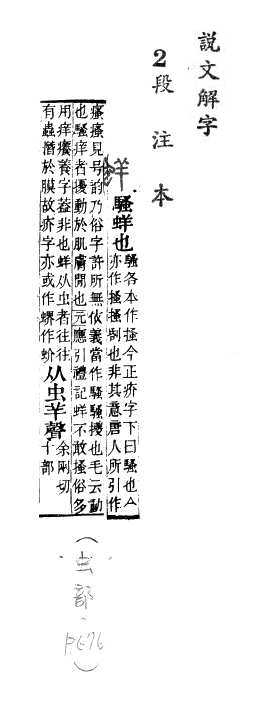 說文解字
2段注本
蛘
騷蛘也
騷各本作搔今正疥字下曰騷也亼
亦作搔搔刮也非其意唐人所引作
瘙瘙見号韵乃俗字許所無依義當作騷騷擾也毛云動
也騷痒者擾動於肌膚閒也元應引禮記蛘不敢搔俗多
用痒癢養字葢非也蛘从虫者往往
有蟲潛於膜故疥字亦或作蠏作蚧
从虫羊聲
余兩切
十部
(虫部.P676)